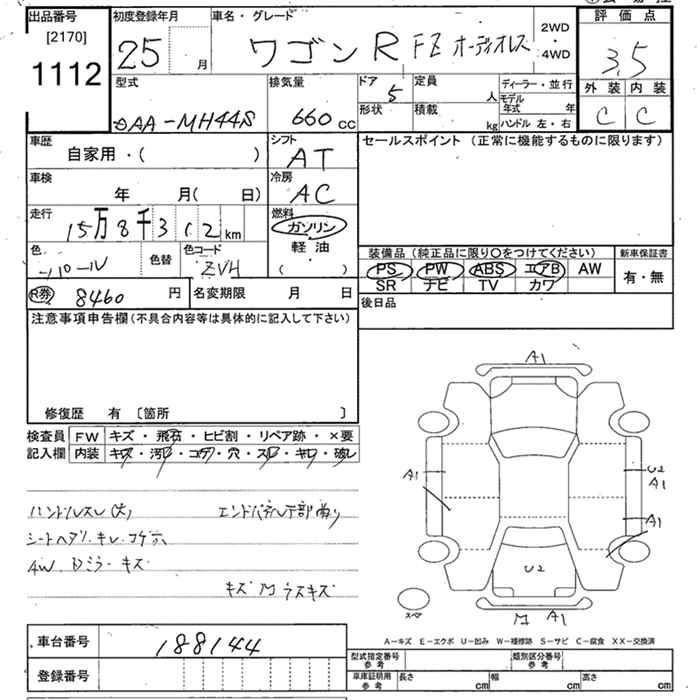 出品番号
[2170]
1112
初度登録年月
25 月
車名・グレード
ワゴン R FZ オーディオレス
2WD
・
4WD
評価点
3.5
外装 内装
C C
型式
DAA-MH44S
排気量
660 cc
ドア
5
形状
定員
人
積載
kg
ディーラー・並行
モデル年式 年
ハンドル 左・右
車歴
自家用・( )
シフト
AT
車検
年 月( 日)
冷房
AC
走行
15万8千312 km
燃料
ガソリン
軽油
( )
色
パール
色替
色コード
ZVH
R券 8460 円
名変期限 月 日
セールスポイント (正常に機能するものに限ります)
装備品 (純正品に限り〇をつけてください)
新車保証書
PS PW ABS エアB AW
SR ナビ TV カワ
有・無
後日品
注意事項申告欄(不具合内容等は具体的に記入して下さい)
修復歴 有 [箇所 ]
検査員 FW キズ・飛石・ヒビ割・リペア跡・×要
記入欄 内装 キズ・汚レ・コゲ・穴・スレ・キレ・破レ
ハンドルスレ(大) エンドパネル下部曲り
シートヘタリ・キレ・コゲ穴
AW Dミラ・キズ
キズ M ラスキズ
A1
A1
U2
A1
A1
U2
M A1
スペア
A-キズ E-エクボ U-凹み W-補修跡 S-サビ C-腐食 XX-交換済
車台番号 188144
登録番号
型式指定番号 参考
類別区分番号 参考
車庫証明用 参考
長さ cm
幅 cm
高さ cm